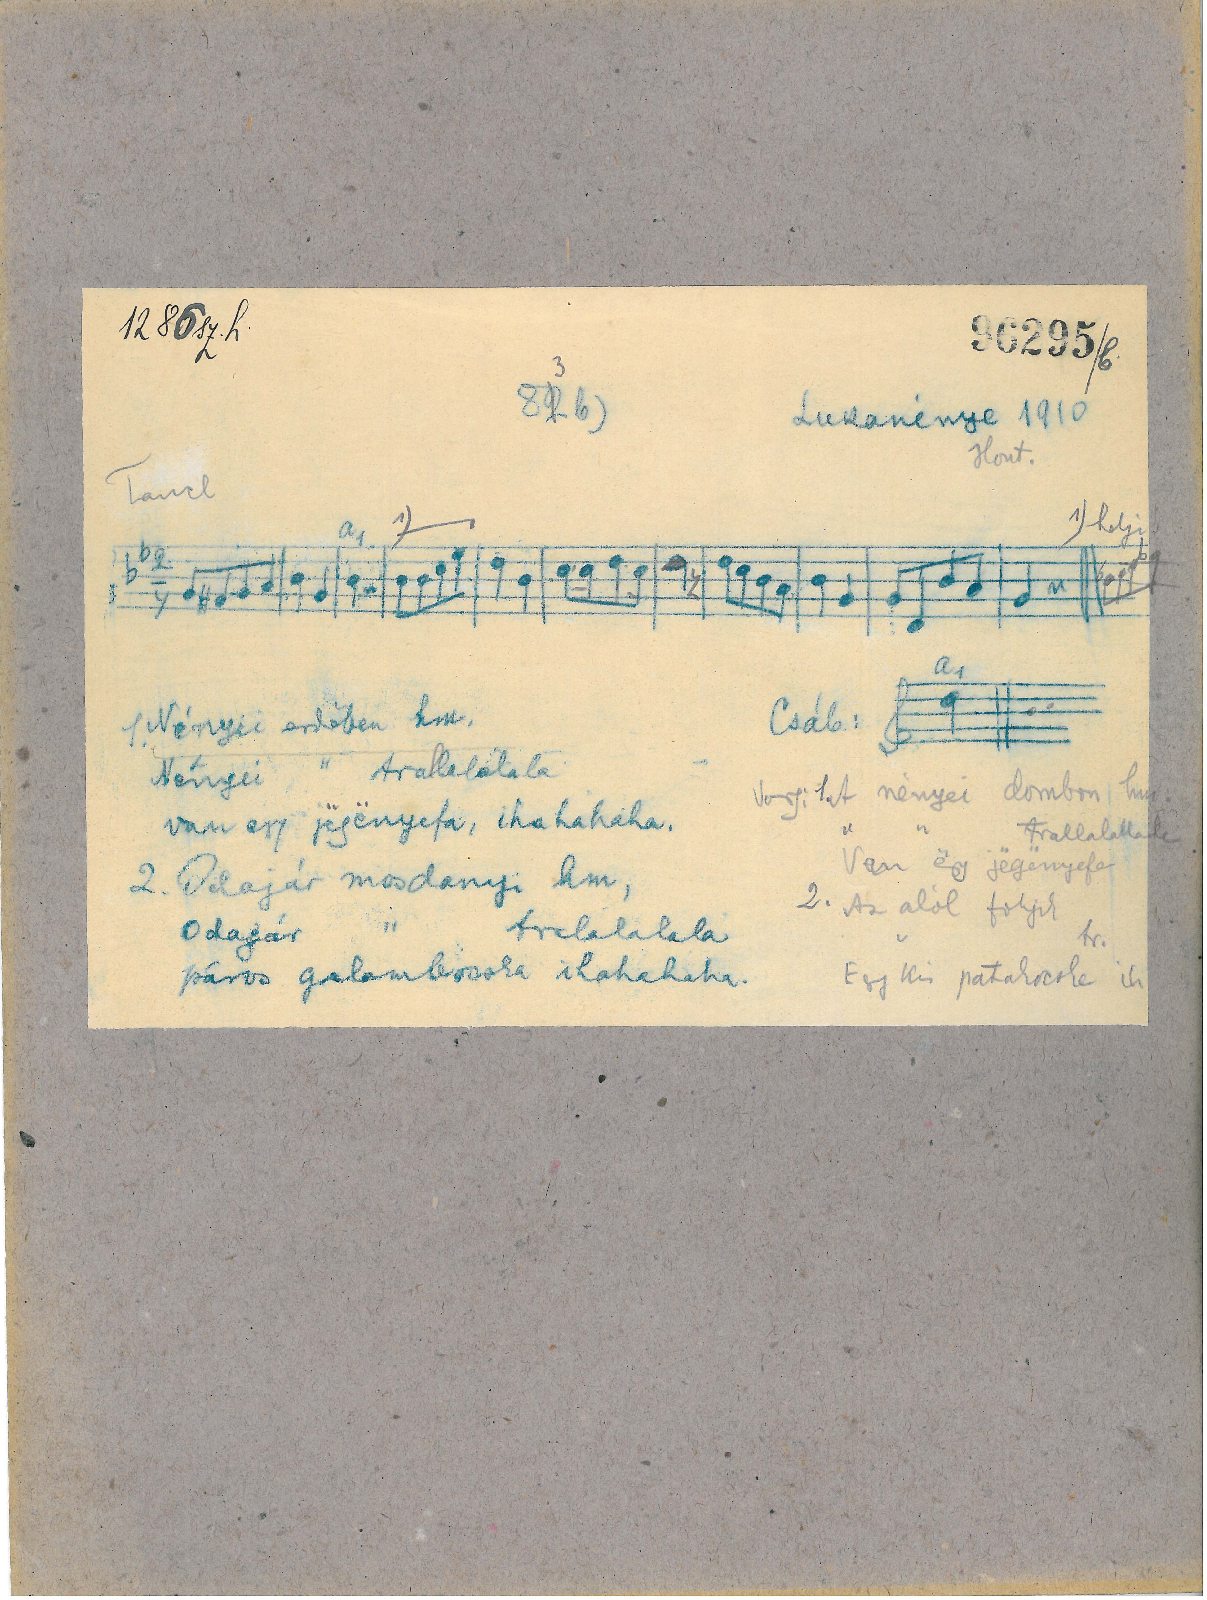 1286 sz. h.
96295/b
3
82 b)
Lukanénye 1910
Hont.
a₁
1)
1) helyi
2
4
a₁
Csáb:
1. Nényei erdőben hm.
Nényei " trallalalala
van egy jëgënyefa, ihahahaha.
2. Odajár mosdanyi hm,
Odajár " tralalalala
páros galambocska ihahahaha.
nényei dombon hm.
" " trallalallala
Van ëgy jëgënyefa
2. Az alól folyik
" tr.
Egy kis patakocska ih